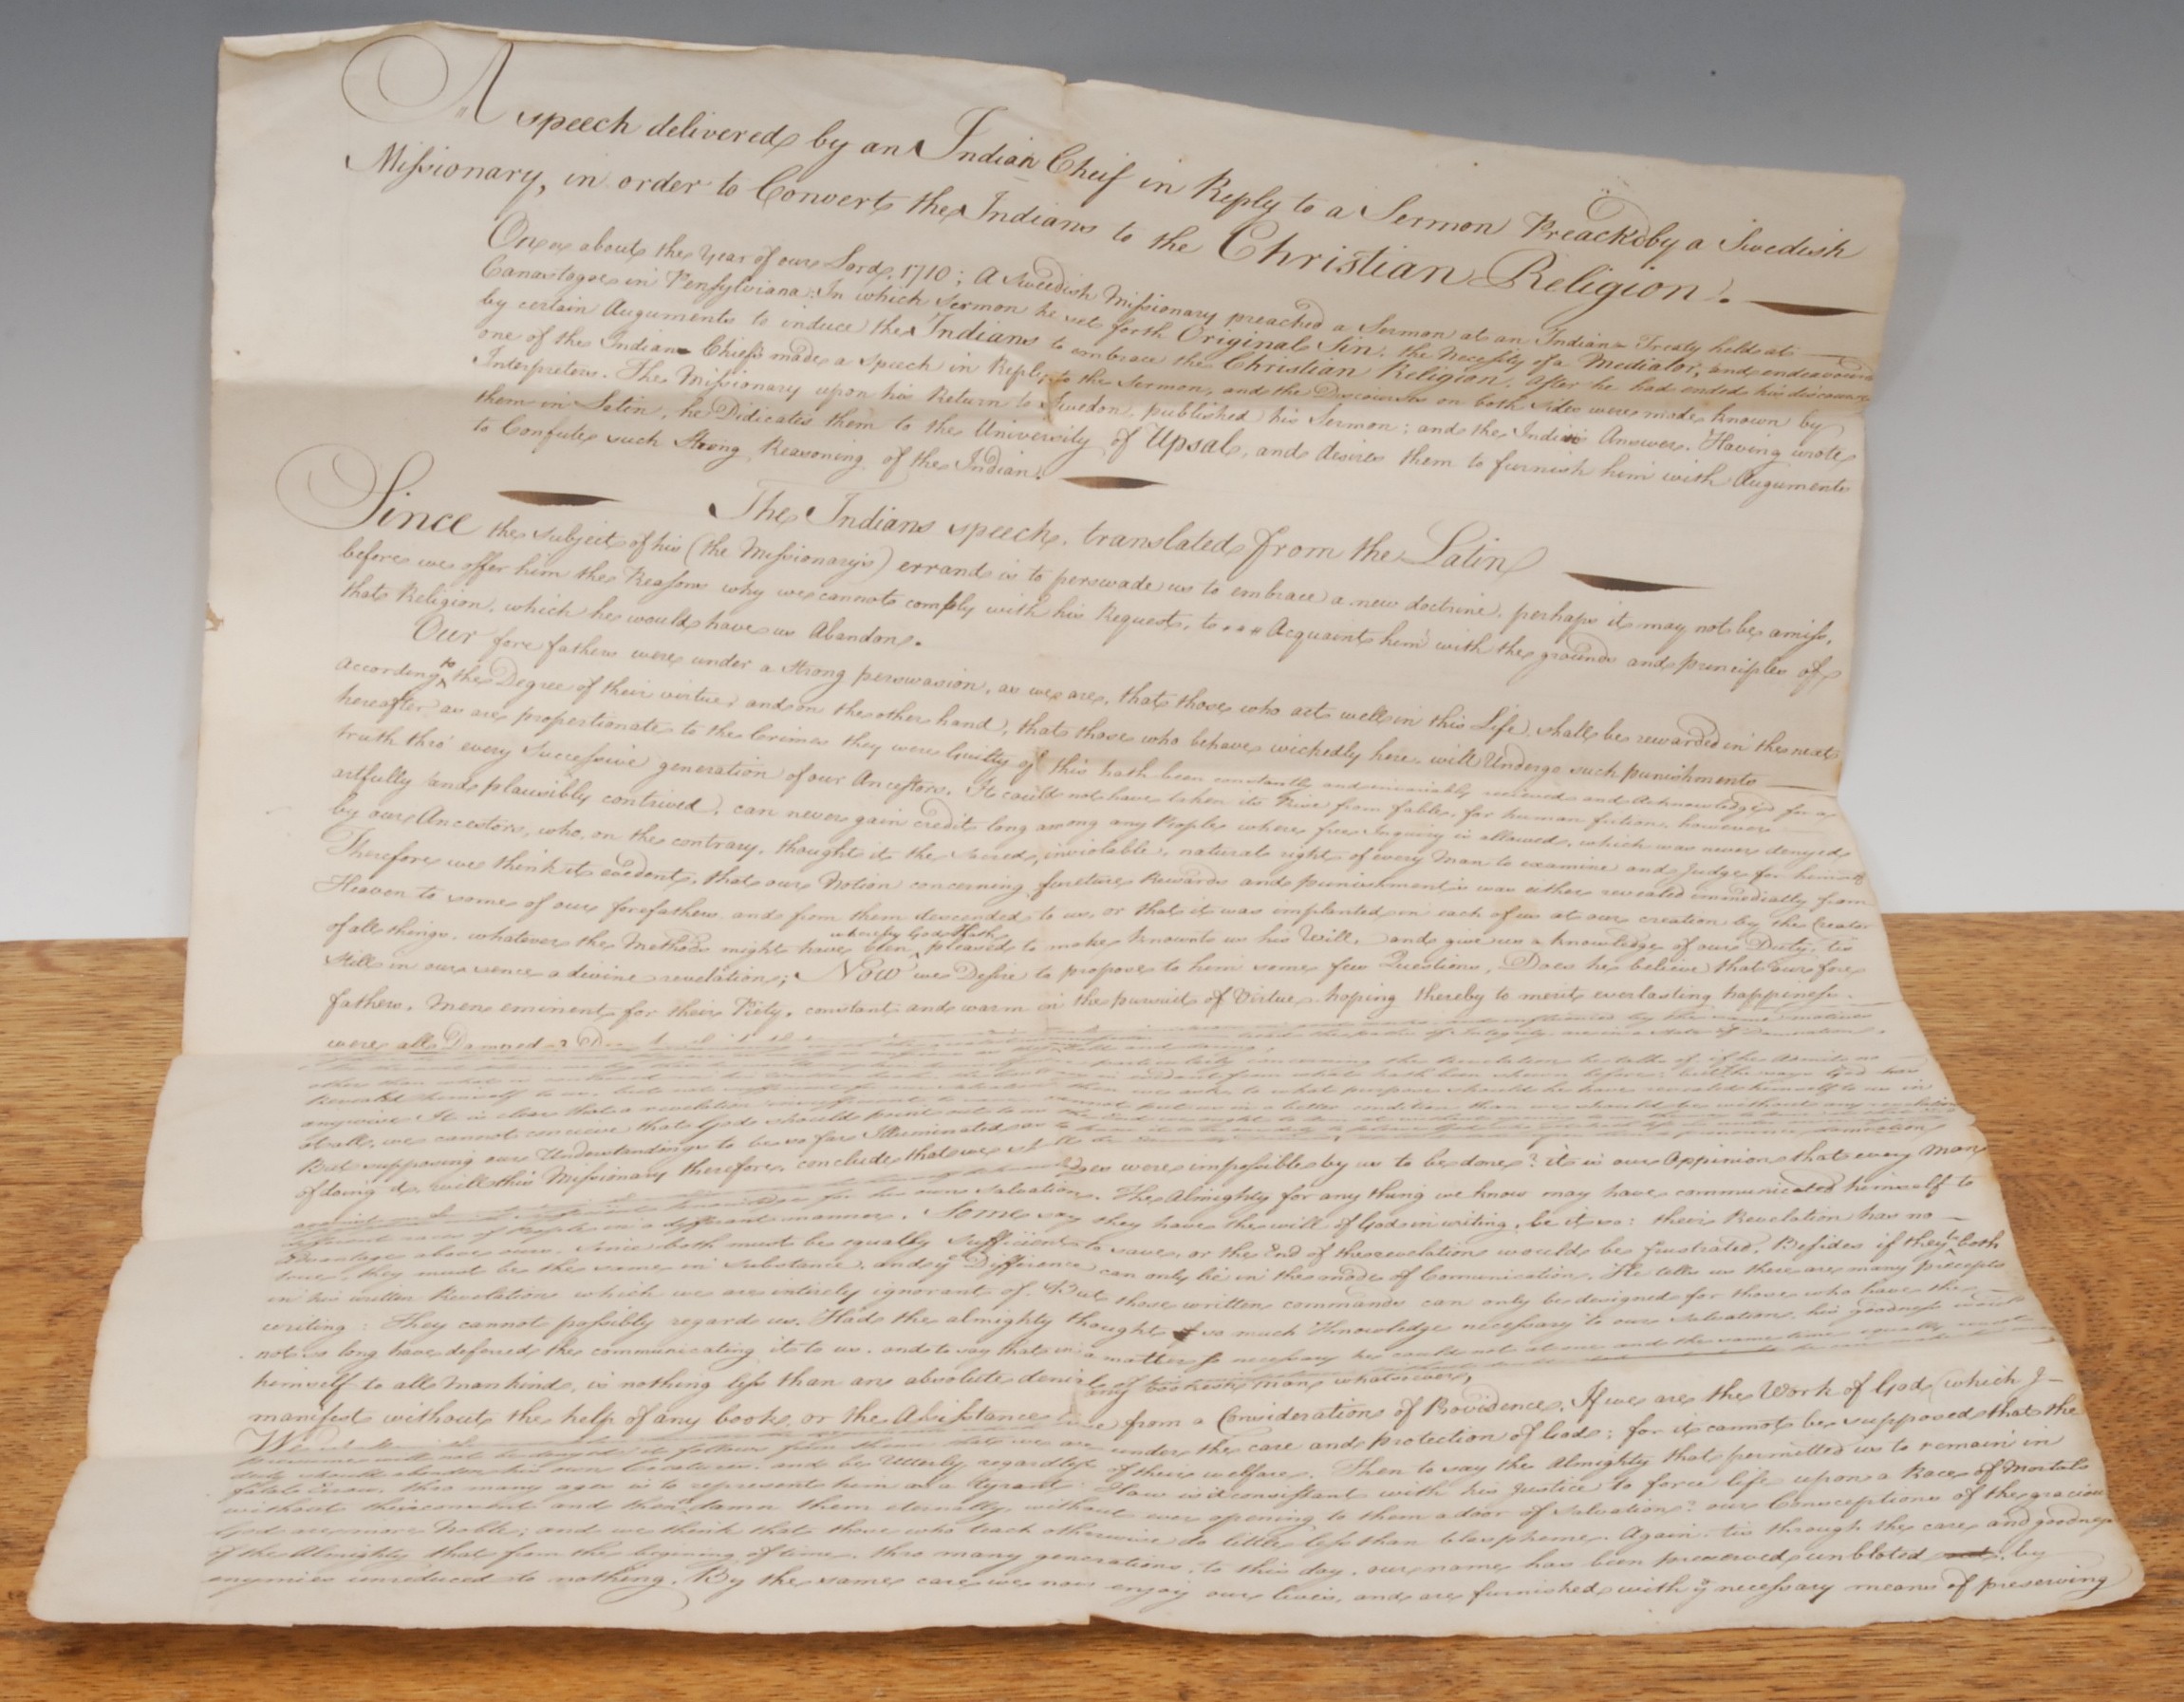 A speech delivered by an Indian Cheif in Reply to a Sermon Preachd by a Swedish
Missionary, in order to Convert the Indians to the Christian Religion.
On or about the Year of our Lord, 1710; A Sweedish Missionary preached a Sermon at an Indian Treaty held at
Canastogoe in Pensylviana: In which Sermon he set forth Original Sin, the Necessity of a Mediator, and endeavourd
by certain Auguments to induce the Indians to embrace the Christian Religion. After he had ended his discourse
one of the Indian Chiefs made a speech in Reply to the Sermon, and the Discourses on both sides were made known by
Interpreters. The Missionary upon his Return to Swedon, published his Sermon; and the Indian Answer. Having wrote
them in Latin, he Didicates them to the University of Upsal, and desires them to furnish him with Auguments
to Confute such Strong Reasoning of the Indian.
The Indians speech, translated from the Latin
Since the subject of his (the Missionary's) errand is to perswade us to embrace a new doctrine, perhaps it may not be amiss,
before we offer him the Reasons why we cannot comply with his Request, to Acquaint him with the grounds and principles of
that Religion, which he would have us Abandon.
Our fore fathers were under a strong perswasion, as we are, that those who act well in this Life, shall be rewarded in the next
according to the Degree of their virtue, and on the other hand, that those who behave wickedly here, will Undergo such punishments
hereafter as are proportionate to the Crimes they were Guilty of this hath been constantly and invariably recieved and Acknowledged for a
truth thro' every Successive generation of our Ancestors. It could not have taken its Rise from fable, for human fiction, however
artfully and plausibly contrived, can never gain credit long among any People where free Inquiry is allowed, which was never denyed
by our Ancestors, who, on the contrary, thought it the sacred, inviolable, natural right of every Man to examine and Judge for himself
Therefore we think it evedent, that our Notion concerning fureture Rewards and punishments was either revealed immediatly from
Heaven to some of our forefathers and from them descended to us, or that it was implanted in each of us at our creation by the Creator
of all things, whatever the Methods might have been whereby God hath pleased to make known to us his Will, and give us a knowledge of our Duty, tis
still in our sence a divine revelation; Now we Desire to propose to him some few Questions, Does he believe that our fore
fathers, men eminent for their Piety, constant and warm in the pursuit of Virtue hoping thereby to merit everlasting happiness
were all Damned
Revealed himself to us, but not sufficient for our salvation then we ask, to what purpose should he have revealed himself to us in
anywise. It is clear that a revelation
at all, we cannot conceive that God should point out to us the End
But supposing our Understandings to be so far Illuminated as to
of doing it, will this Missionary therefore conclude that we
were impossible by us to be done? it is our Oppinion that every Man
for his own salvation. The Almighty for any thing we know may have communicated himself to
different races of People in a different manner. Some say they have the will of God in writing, be it so: their Revelation has no
advantage above ours, since both must be equally sufficient to save, or the End of the revelation would be frustrated. Besides if they both
true, they must be the same in substance, and the Difference can only lie in the mode of Comunication. He tells us there are many precepts
in his written Revelation which we are intirely ignorant of. But those written commands can only be designed for those who have the
writing: They cannot possibly regard us. Had the almighty thought so much Knowledge necessary to our salvation, his goodness would
not so long have deferred the communicating it to us, and to say that in a matter so necessary he could not at one and the same time equally
himself to all mankind, is nothing less than an absolute denial
manifest without the help of any book, or the Assistance
any man whatsoever,
from a Consideration of Providence. If we are the Work of God (which I
presume will not be denyed it follows from thence that we are under the care and protection of God; for it cannot be supposed that the
deity should abandon his own Creatures, and be Utterly regardless of their welfare. Then to say the Almighty that permitted us to remain in
fatal Error, thro many ages is to represent him as a tyrant. How is it consistant with his Justice to force life upon a Race of Mortals
without their consent and then damn them eternally, without ever opening to them a door of salvation? our Consceptions of the gracious
God are more Noble; and we think that those who teach otherwise do little less than blaspheme. Again. tis through the care and goodness
of the Almighty that from the begining of time, thro many generations, to this day, our name has been preserved, unbloted by
enymies unreduced to nothing. By the same care we now enjoy our lives, and are furnished with ye necessary means of preserving